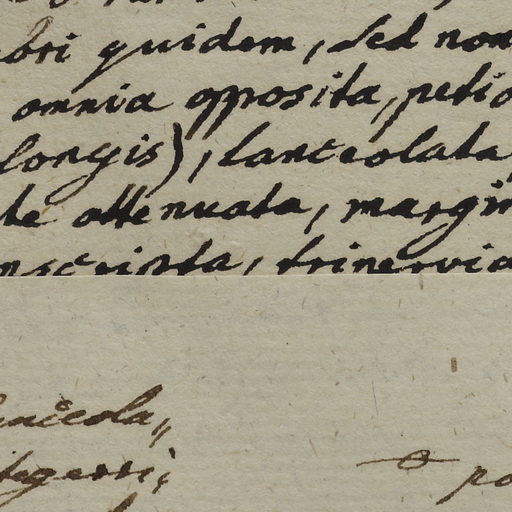 bri quidem, sed non
omnia opposita, petio
longis), lanceolata,
te attenuata, margin
nscripta, trinervia
tegerri;
po